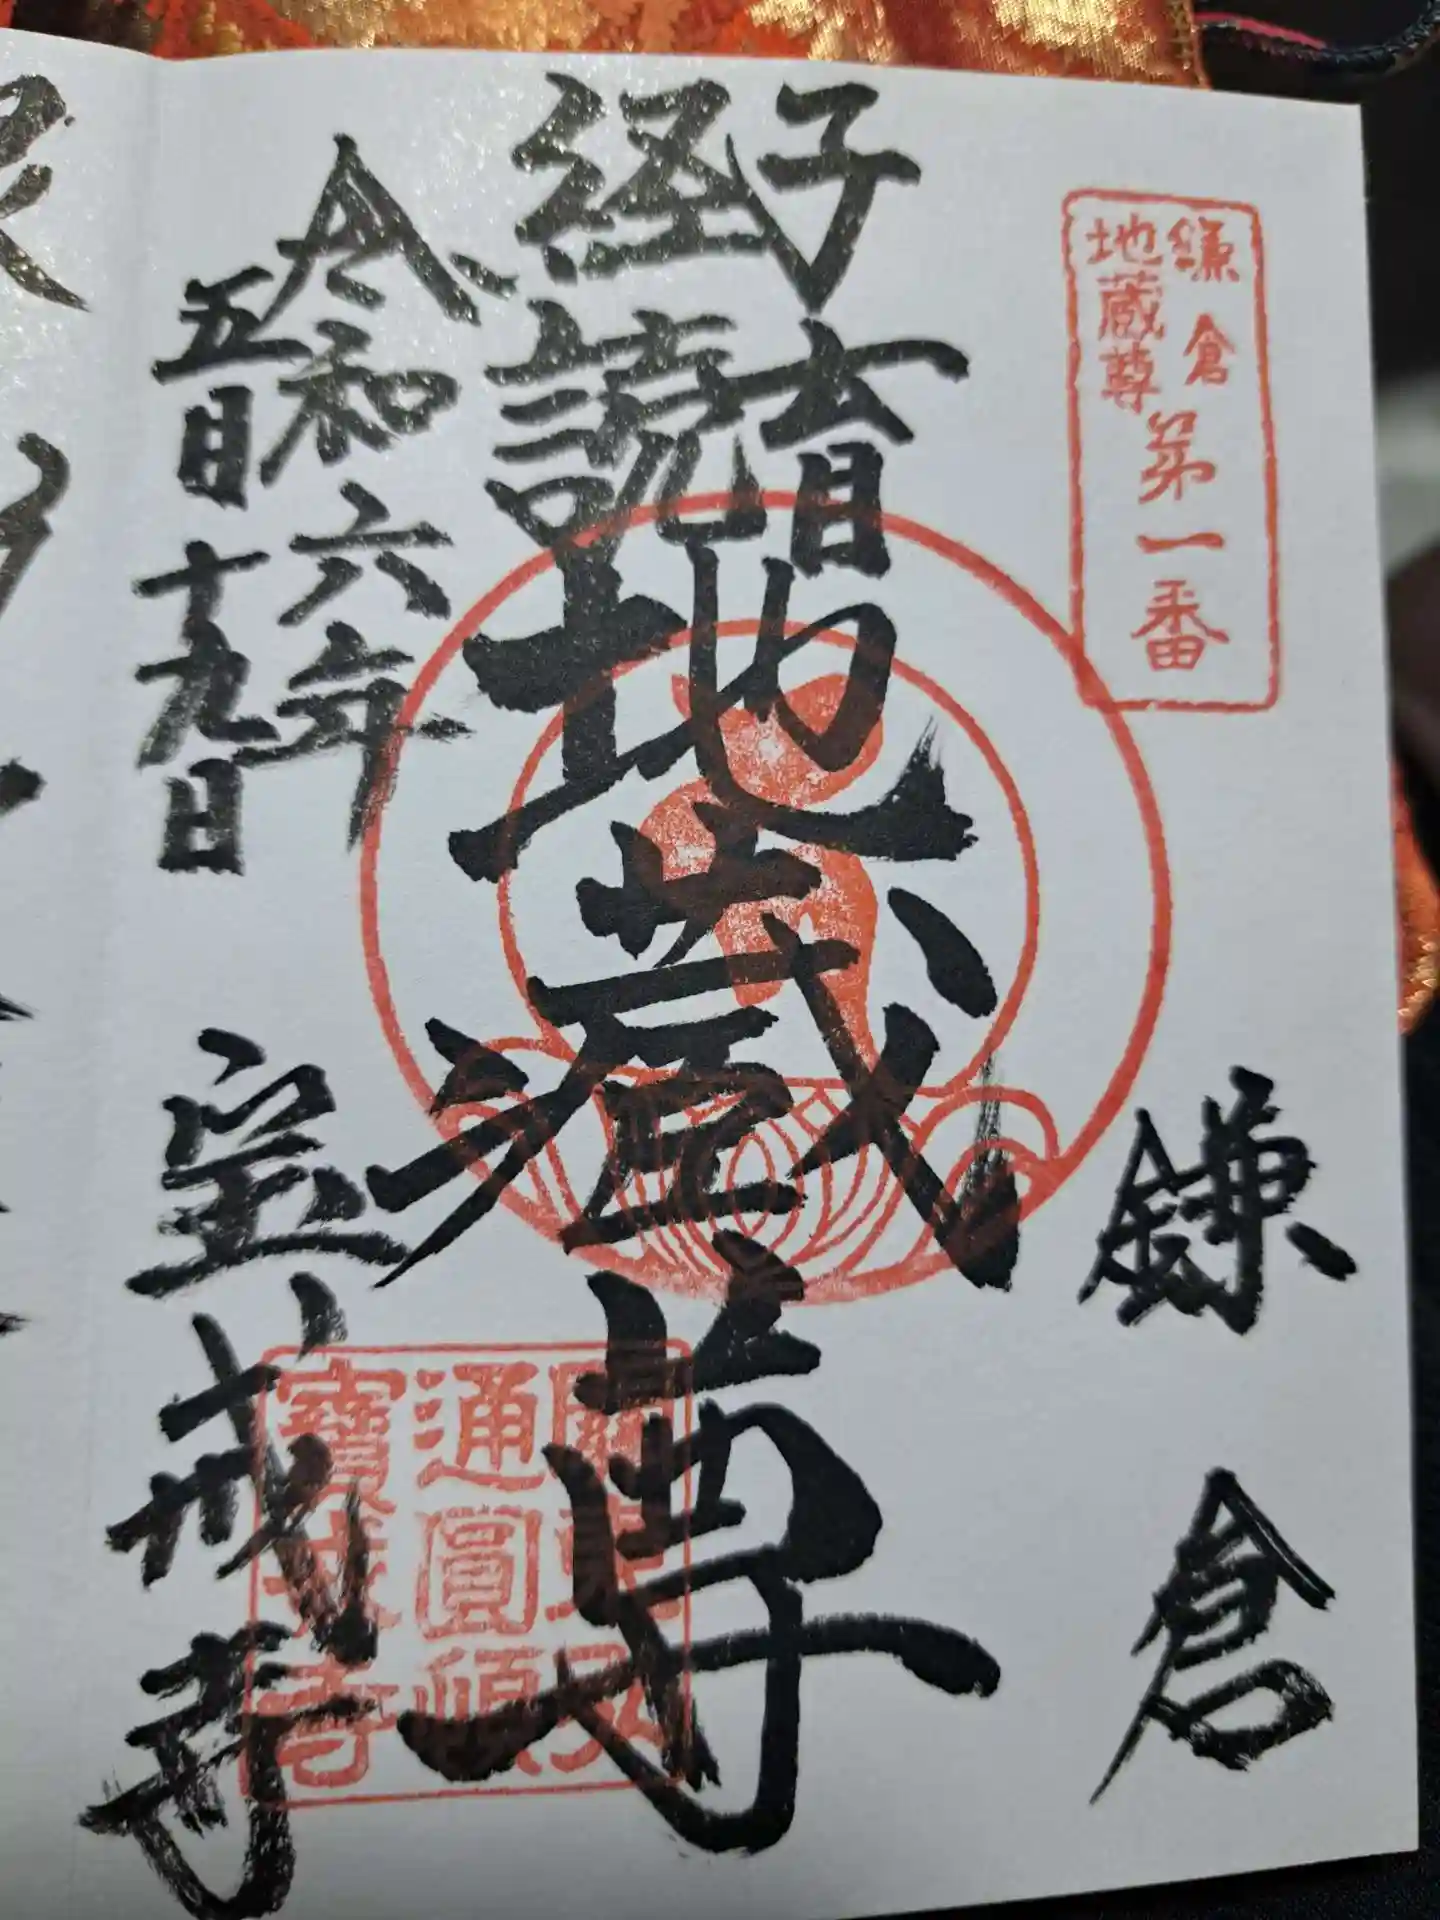 鎌倉
地蔵尊
第一番
鎌倉
子育
経読
地蔵尊
令和六年
五月十九日
宝戒寺
通圓頓
寳戒寺